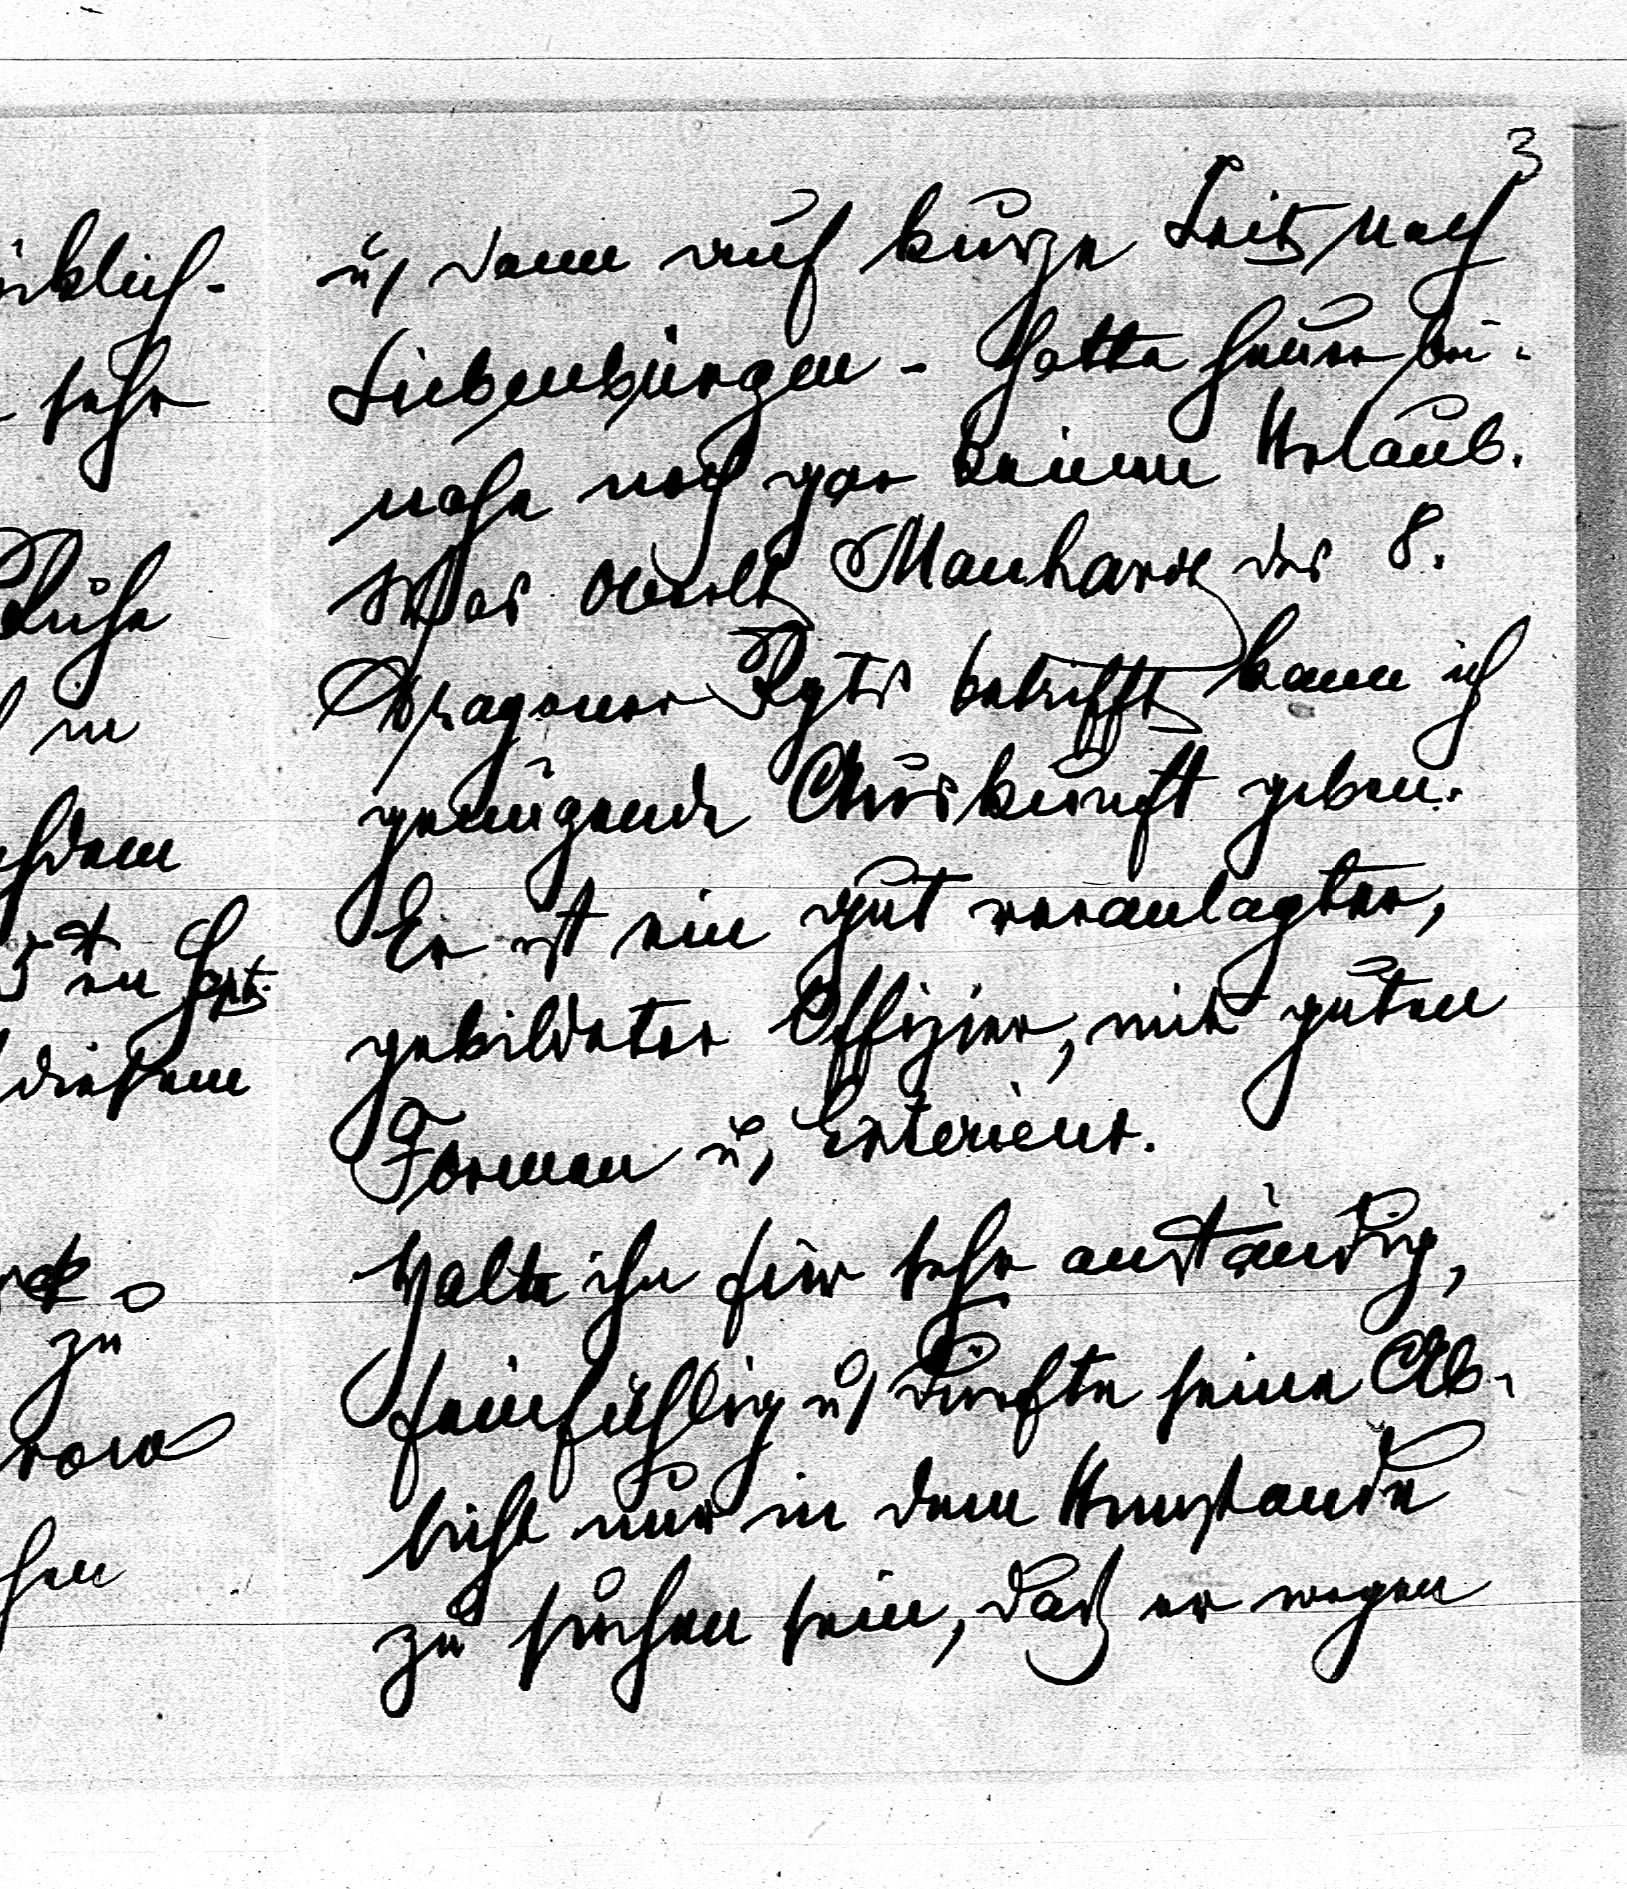 3
u, dann auf kurze Zeit nach
Siebenbürgen - Hatte heuer bei-
nahe noch gar keinen Urlaub.
Was Oberlt Manhard des 8.
Dragoner Rgts betrifft kann ich
genügende Auskunft geben.
Er ist ein gut veranlagter,
gebildeter Offizier, mit guten
Formen u, Exterieur.
Halte ihn für sehr anständig,
feinfühlig u, dürfte seine Ab-
sicht nur in dem Umstande
zu suchen sein, daß er wegen
sehr
Ruhe
in
diesem
zu